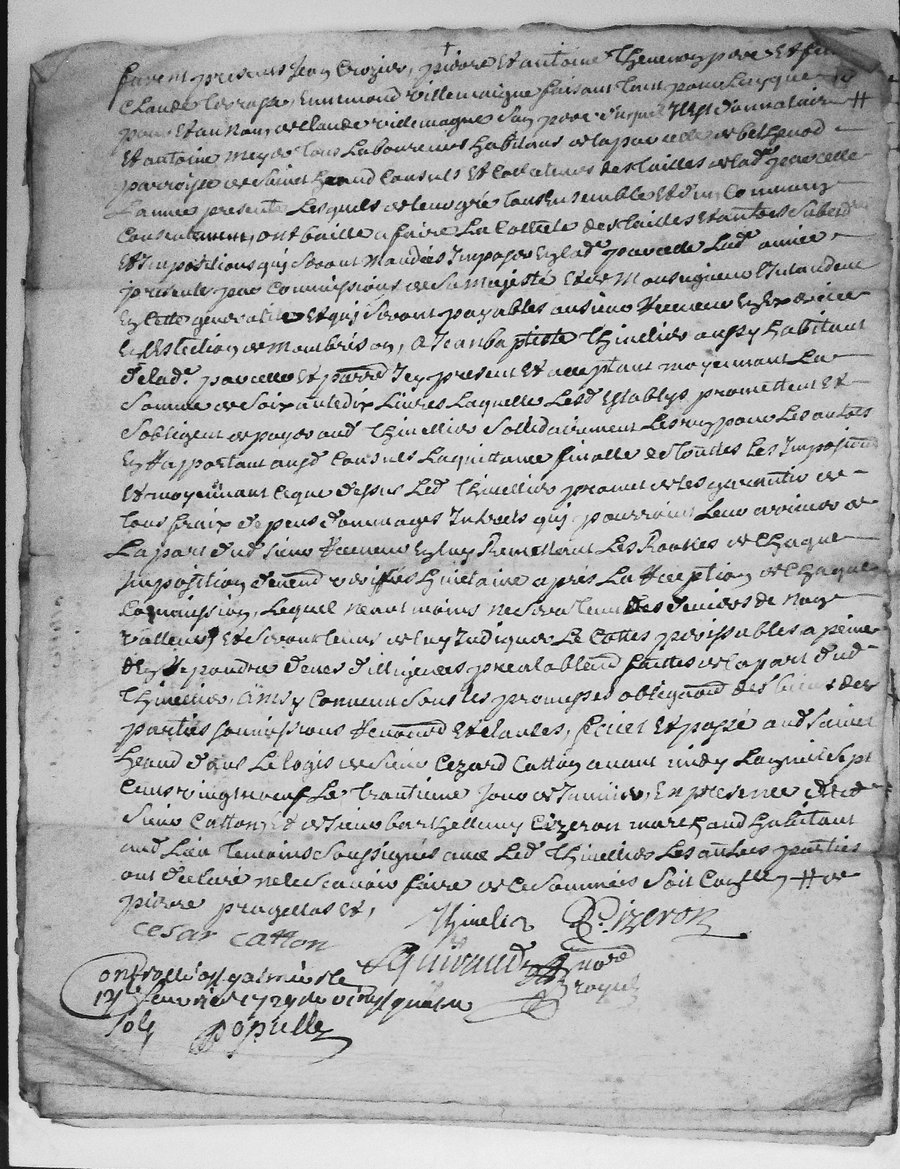 furent presens Jean Crozier, pierre Et antoine Thevenon pere Et fils
Claude terrasse, Ennemond villemaigne faisant tant pour Luy que
pour Et au Nom de Claude villemagne son pere duquel Il Est donnataire #
Et antoine meyer tous Laboureurs habitans de la parcelle de bethenod
parroisse de Saint heand Consuls Et Collateurs des tailles de lad. parcelle
Lannee presente Lesquels de leur gré tous Ensemble Et d'un Commung
Consentement, ont baillé a faire La Collecte des tailles Et autres Subcides
Et Impositions qui seront mandées Imposer En lad. parcelle Lad. année
presente par Commissions de Sa Majesté Et de Monseigneur L'Intandent
En Cette generalité Et qui seront payables au sieur Receveur En Exercice
En L'Eslection de Montbrison, a Jean baptiste Thinelier aussy habitant
de lad. parcelle Et parre. Icy present Et acceptant moyennant La
Somme de Soixante dix Livres Laquelle Lesd. Establys promettent Et
s'obligent de payer aud. Thinellier Sollidairement Les ung pour Les autres
En Rapportant ausd. Consuls La quittance finalle de touttes Les Impositions
Et moyennant Ce que dessus Led. Thinellier promet de les garentir de
tous fraix depens dommages Interets qui pourront Leur arriver de
La part dud. sieur Receveur En luy Remettant Les Rolles de Chaque
Imposition deuemd veriffiés huictaine aprés La Reception de Chaque
Commission, Lequel neantmoins ne sera tenu des deniers de non
valleurs Et seront tenus de luy Indiquer Le Cottes perissables a peine
d'En Repondre deues dilligences prealablemd faittes de la part dud.
Thinellier, Ainsy Convenu sous les promesses obligaons des biens des
parties soumissions Renonaons Et Clauses, fait Et passé aud. Saint
heand dans Le logis de sieur Cezard Catton avant midy L'an mil Sept
Cens vingt neuf Le trantieme Jour de Janvier, En presence dud.
sieur Catton, Et de sieur barthellemy Cizeron marchand habitant
aud. Lieu temoins soussignés avec Led. Thinellier Les autres parties
ont declaré ne le scavoir faire de Ce sommés Soit Conlle # de
pierre
Cesar Catton Thinelier B. Cizeron
notre royal
Controllé a St galmier le
12e fevrier 1729 Recu
sols
populle